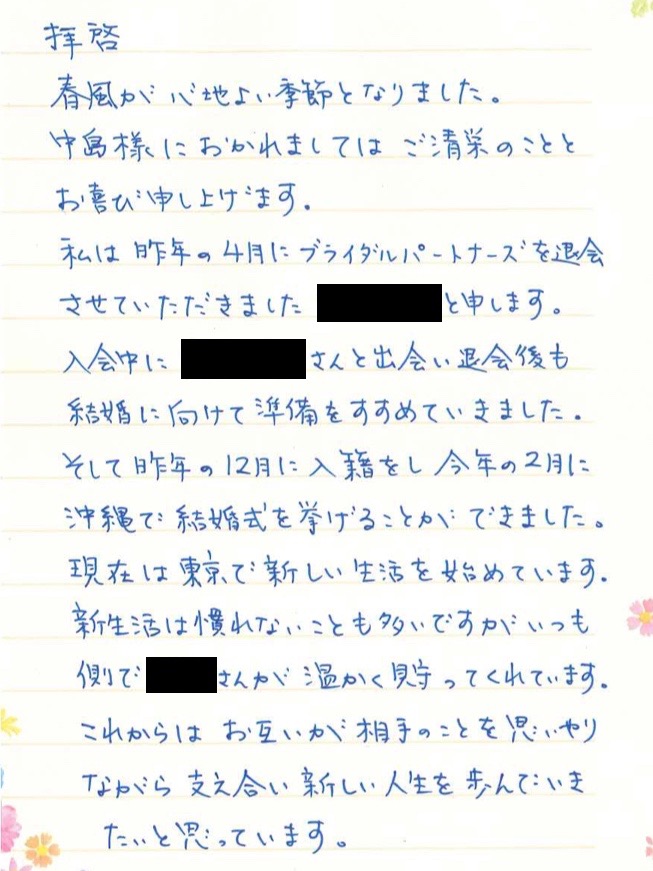 拝啓
春風が心地よい季節となりました。
中島様におかれましてはご清栄のことと
お喜び申し上げます。
私は昨年の4月にブライダルパートナーズを退会
させていただきました と申します。
入会中に さんと出会い退会後も
結婚に向けて準備をすすめていきました。
そして昨年の12月に入籍をし今年の2月に
沖縄で結婚式を挙げることができました。
現在は東京で新しい生活を始めています。
新生活は慣れないことも多いですがいつも
側で さんが温かく見守ってくれています。
これからはお互いが相手のことを思いやり
ながら支え合い新しい人生を歩んでいき
たいと思っています。